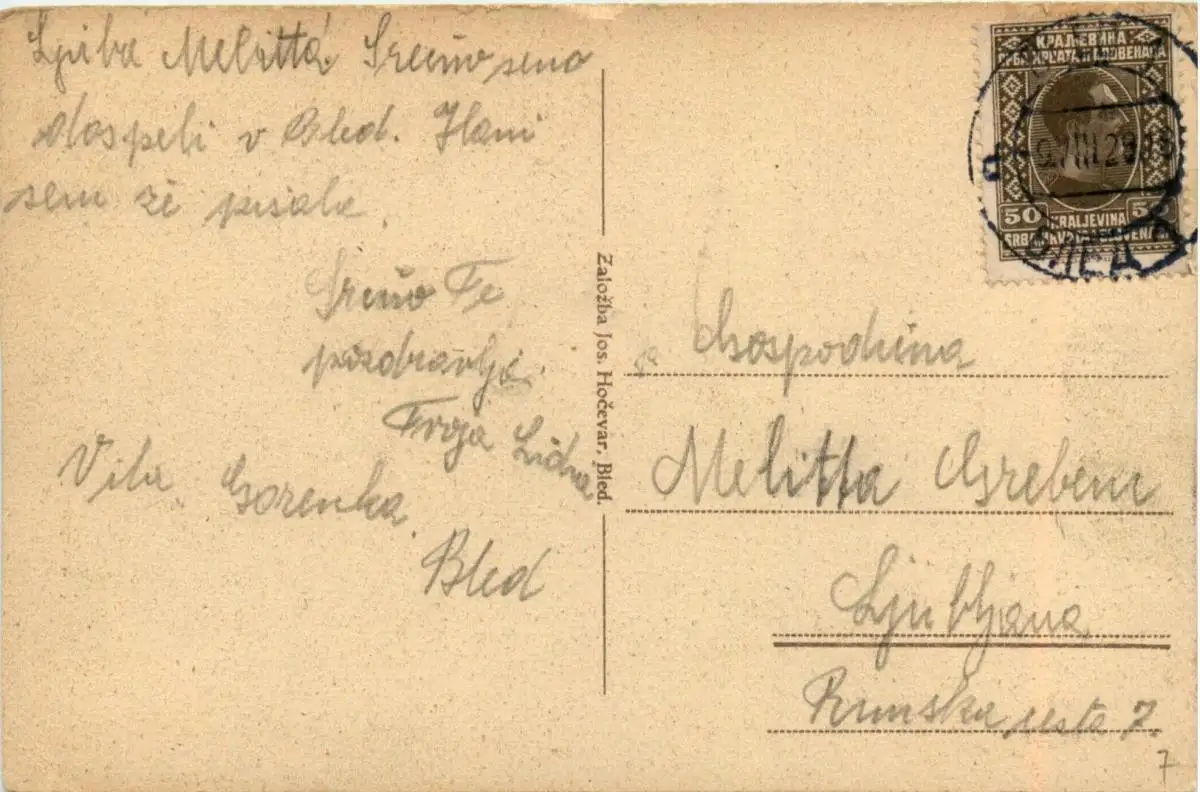 Ljuba Melitta. Srečno smo
dospeli v Bled. Hani
sem že pisala.
Srčno Te
pozdravlja
Tvoja Lidva
Vila Gorenka
Bled
Založba Jos. Hočevar, Bled.
КРАЉЕВИНА
СРБА ХРВАТА И СЛОВЕНАЦА
50 50
KRALJEVINA
SRBA HRVATA I SLOVENACA
БЛЕД
Gospodična
Melitta Greben
Ljubljana
Rimska cesta 7.
7